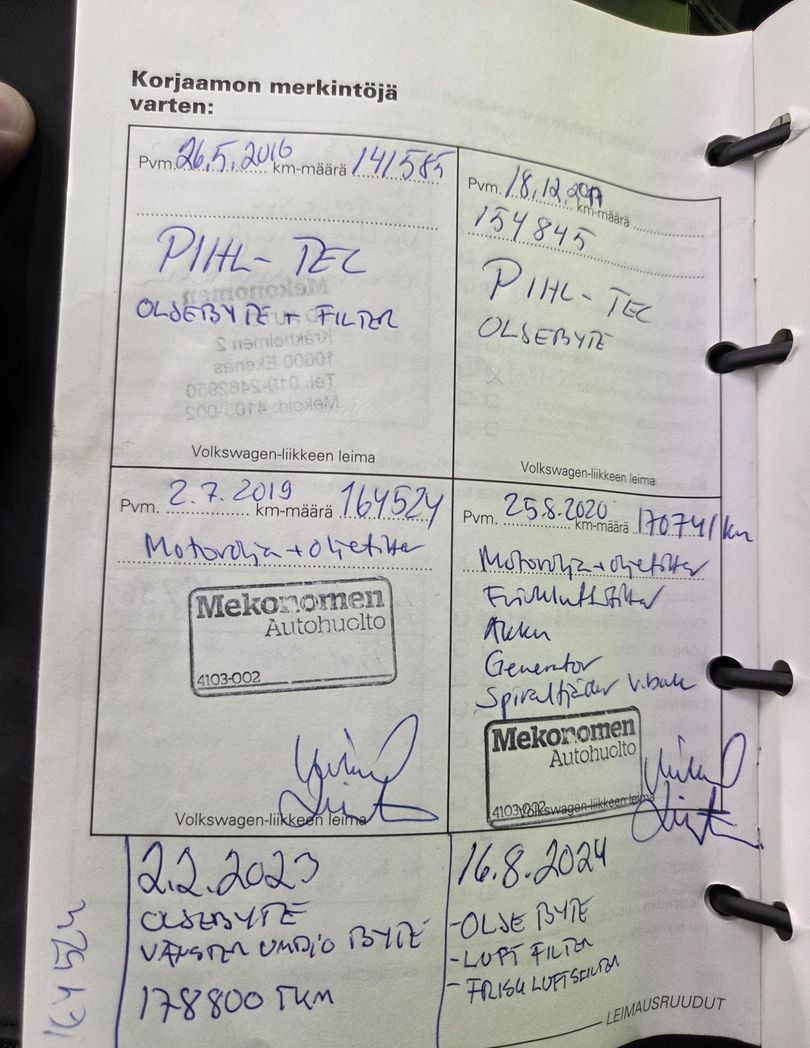 Korjaamon merkintöjä
varten:
Pvm. 26.5.2016 km-määrä 141585
PIHL-TEC
OLJEBYTE + FILTER
Volkswagen-liikkeen leima
Pvm. 18.12.2017
km-määrä
154845
PIHL-TEC
OLJEBYTE
Volkswagen-liikkeen leima
Pvm. 2.7.2019 km-määrä 164524
Motorolja + oljefilter
Mekonomen
Autohuolto
4103-002
Volkswagen-liikkeen leima
Pvm. 25.8.2020 km-määrä 170741 km
Motorolja + oljefilter
Friskluftsfilter
Akku
Generator
Spiralfjäder v.bak
Mekonomen
Autohuolto
4103-002
Volkswagen-liikkeen leima
2.2.2023
OLJEBYTE
VÄNSTER BYTE
178800 TKM
16.8.2024
-OLJE BYTE
-LUFT FILTER
-FRISK LUFTSFILTER
LEIMAUSRUUDUT
164524
Mekonomen
10600 Ekenäs
Tel. 019-2462950
Mekoid: 4103-002